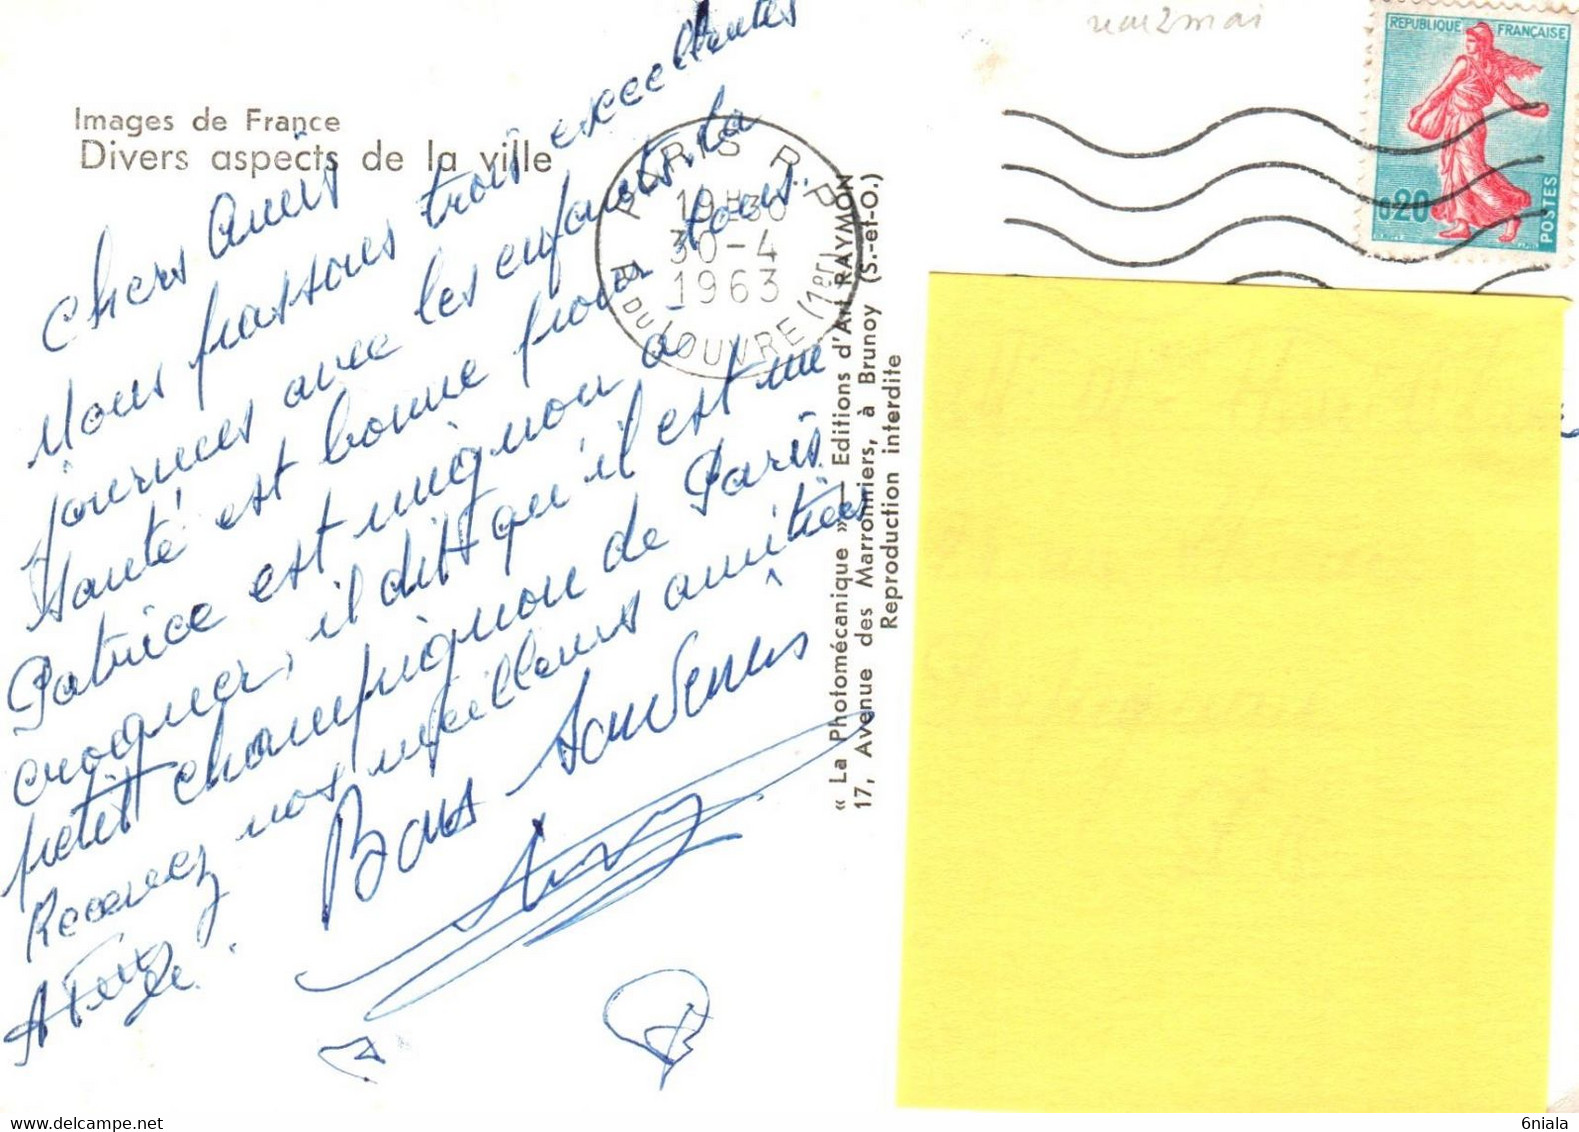 Images de France
Divers aspects de la ville
Chers Amis
Nous passons trois excellentes
journees avec les enfants. La
Santé est bonne pour tous.
Patrice est mignon à
croquer, il dit qu'il est un
petit champignon de Paris
Recevez nos meilleures amitiés
Bons souvenirs
PARIS R.P.
19H30
30-4
1963
R. DU LOUVRE (1er)
« La Photomécanique » - Editions d'Art RAYMON
17, Avenue des Marronniers, à Brunoy (S.-et-O.)
Reproduction interdite
REPUBLIQUE FRANÇAISE
0,20
POSTES
6niala
delcampe.net